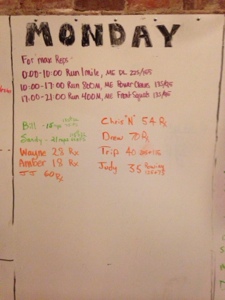 MONDAY
For max Reps:
0:00-10:00 Run 1 mile, ME DL 225/155
10:00-17:00 Run 800M, ME Power Cleans 135/95
17:00-21:00 Run 400M, ME Front Squats 135/95
Bill
Sandy
Wayne 28 Rx
Amber 18 Rx
JJ 60 Rx
Chris "N" 54 Rx
Drew 70 Rx
Trip 40
Judy 35 Rowing